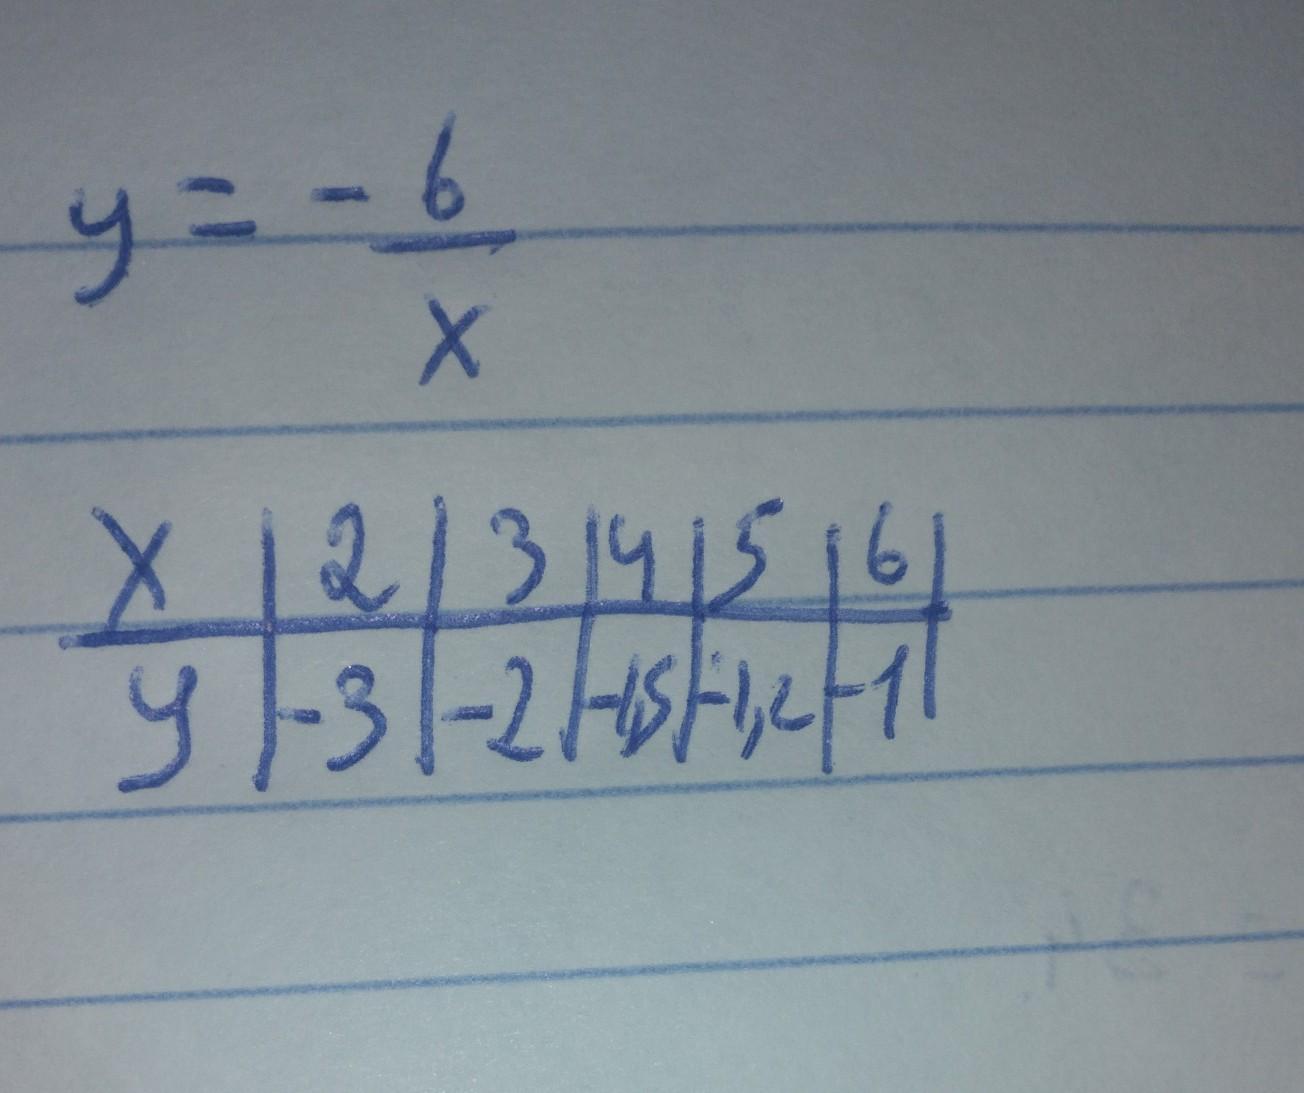 y = - 6/x
x | 2 | 3 | 4 | 5 | 6 |
y | -3 | -2 | -1,5 | -1,2 | -1 |